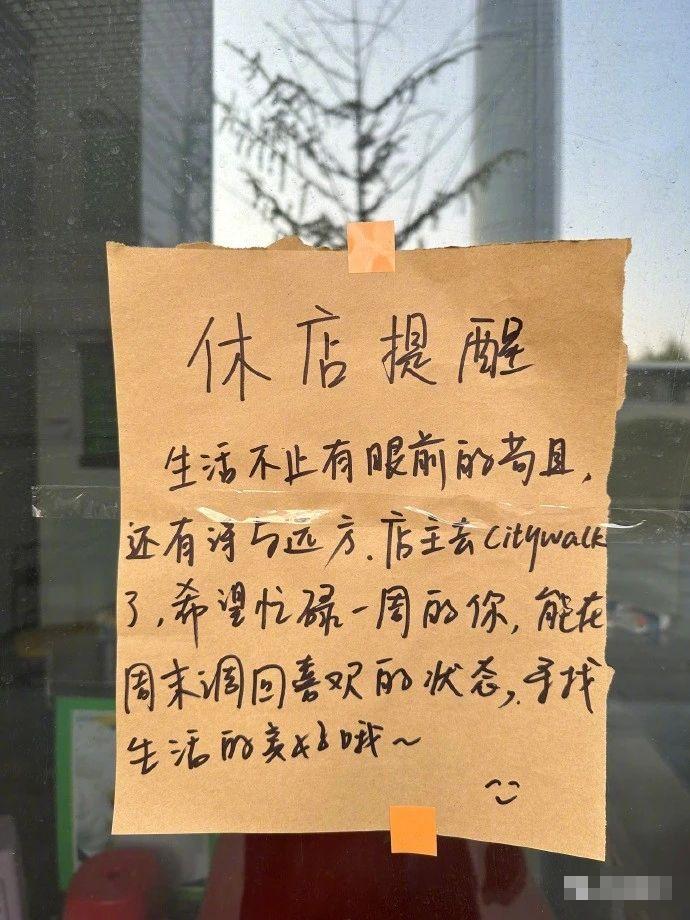 休店提醒
生活不止有眼前的苟且,
还有诗与远方.店主去citywalk
了,希望忙碌一周的你,能在
周末调回喜欢的状态,寻找
生活的美好哦~